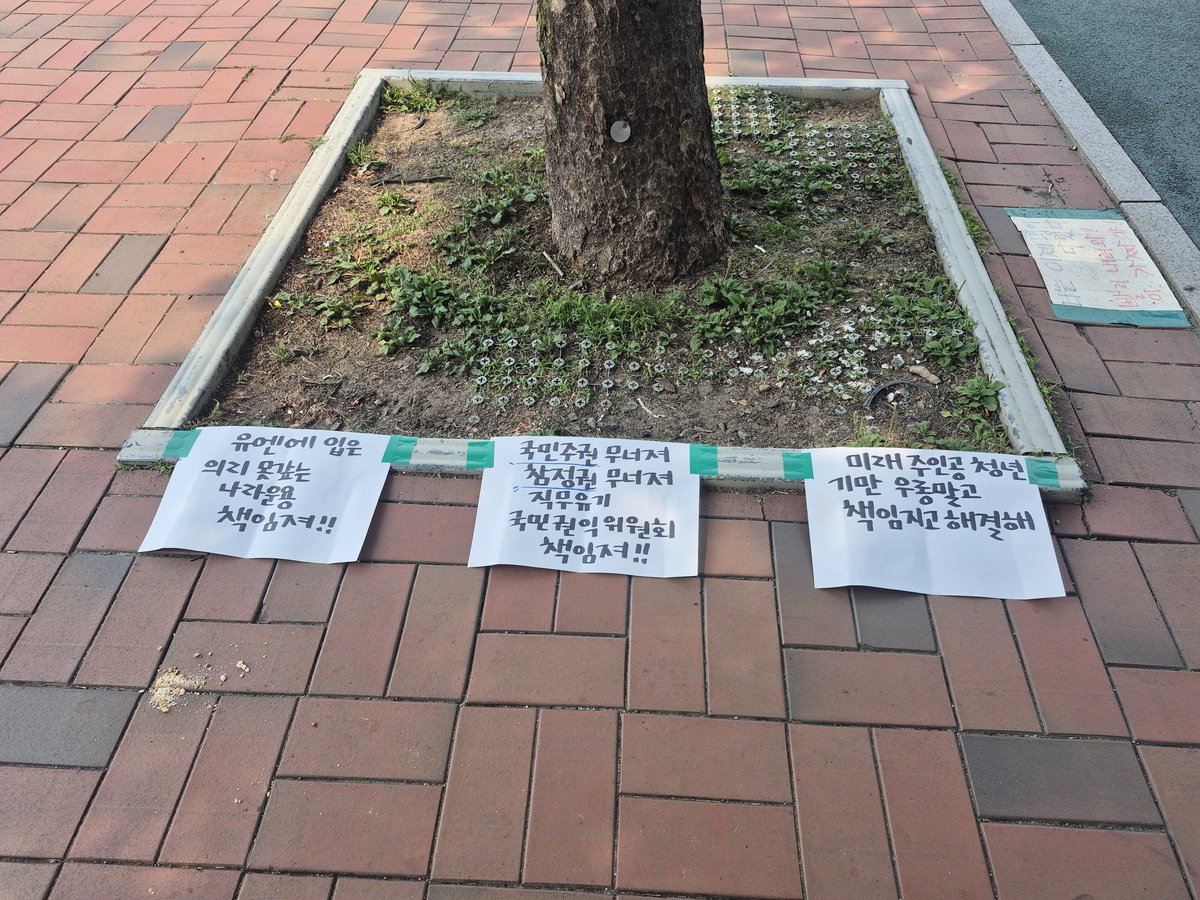 유엔에 입은
의리 못갚는
나라운용
책임져!!
국민주권 무너져
참정권 무너져
직무유기
국민권익위원회
책임져!!
미래 주인공 청년
기만 우롱말고
책임지고 해결해